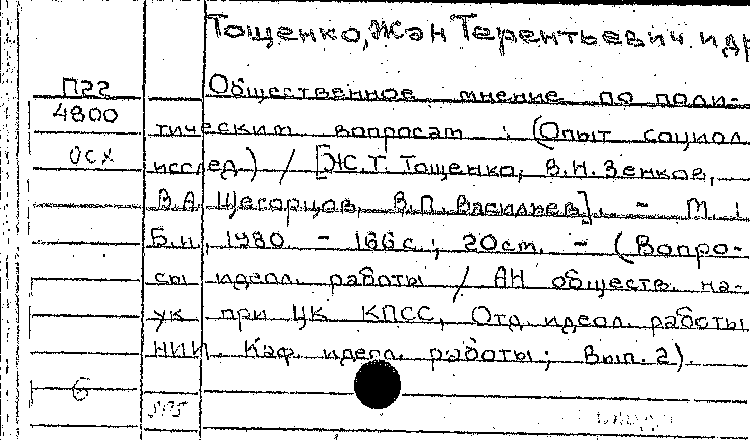 Тощенко, Жан Терентьевич и др
П22
Общественное мнение по поли-
4800
тическим вопросам : (Опыт социол.
исслед) / [Ж.Т. Тощенко, В.Н. Зенков,
В.А. Щегорцов, В.П. Васильев]. - М. :
Б.и., 1980. - 166 с.; 20 см. - (Вопро-
сы идеол. работы / АН обществ. на-
ук при ЦК КПСС, Отд. идеол. работы
НИИ. Каф. идеол. работы; Вып. 2).
6